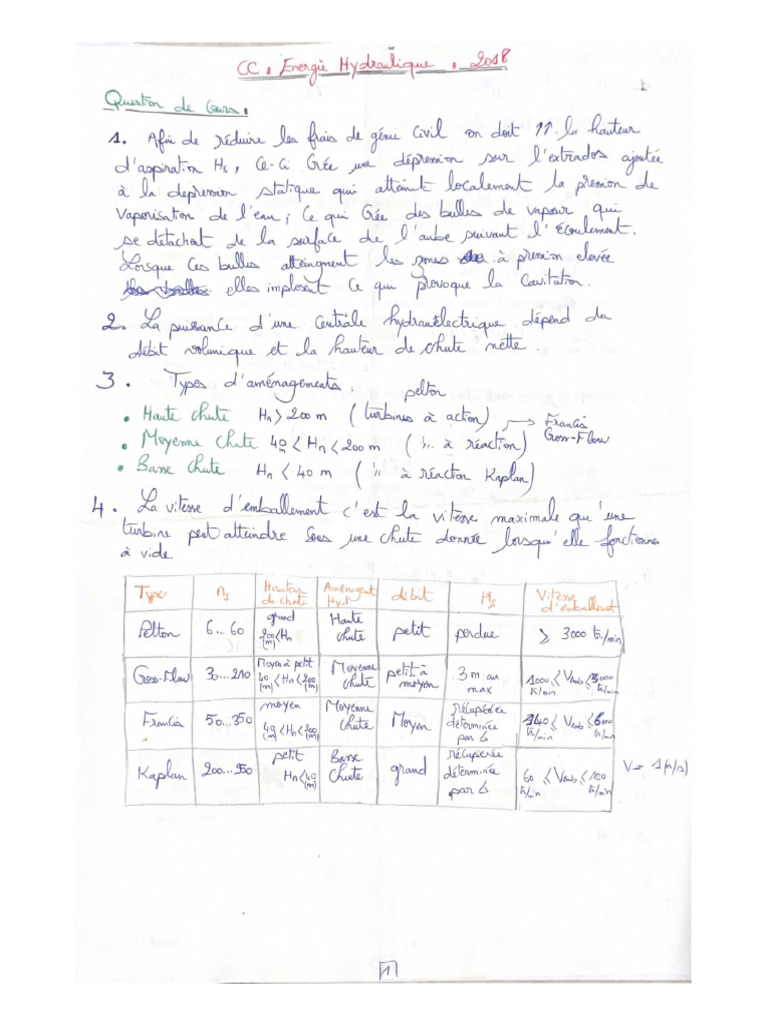 CC. Energie Hydraulique. 2018
Question de Cours.
1. Afin de réduire les frais de génie Civil on doit ↑↑ la hauteur
d'aspiration Hs, Ce-Ci Crée une dépression sur l'extrados ajoutée
à la depression statique qui atteint localement la pression de
vaporisation de l'eau ; Ce qui Crée des bulles de vapeur qui
se détachent de la surface de l'aube suivant l'écoulement.
Lorsque Ces bulles atteingnent les zones à pression elevée
elles implosent Ce qui provoque la Cavitation.
2. La puissance d'une Centrale hydraulélectrique dépend du
débit volumique et la hauteur de chute nette.
3. Types d'aménagements :
pelton
• Haute chute Hn > 200 m (turbines à action) → Francis
• Moyenne chute 40 m < Hn < 200 m (".. à réaction) Cross-Flow
• Basse chute Hn < 40 m (" à réaction Kaplan)
4. La vitesse d'emballement c'est la vitesse maximale qu'une
turbine peut atteindre sous une chute donnée lorsqu'elle fonctionne
à vide
Type ns Hauteur de chute Débit Vitesse d'emballement
Pelton 6...60 grand 200 < Hn (m) Haute chute petit perdue ⩾ 3000 tr/min
Cross-Flow 30...210 Moyen à petit 40 (m) < Hn < 200 (m) Moyenne chute petit à moyen 3 m au max 1000 tr/min ≤ Vemb ≤ 3000 tr/min
Francis 50...350 moyen 40 (m) < Hn < 200 (m) Moyenne chute Moyen récupérée déterminée par tr/min ≤ Vemb ≤ tr/min
Kaplan petit Hn < 40 (m) Basse chute grand récuperée déterminée par 60 tr/min ≤ Vemb ≤ 100 tr/min
1